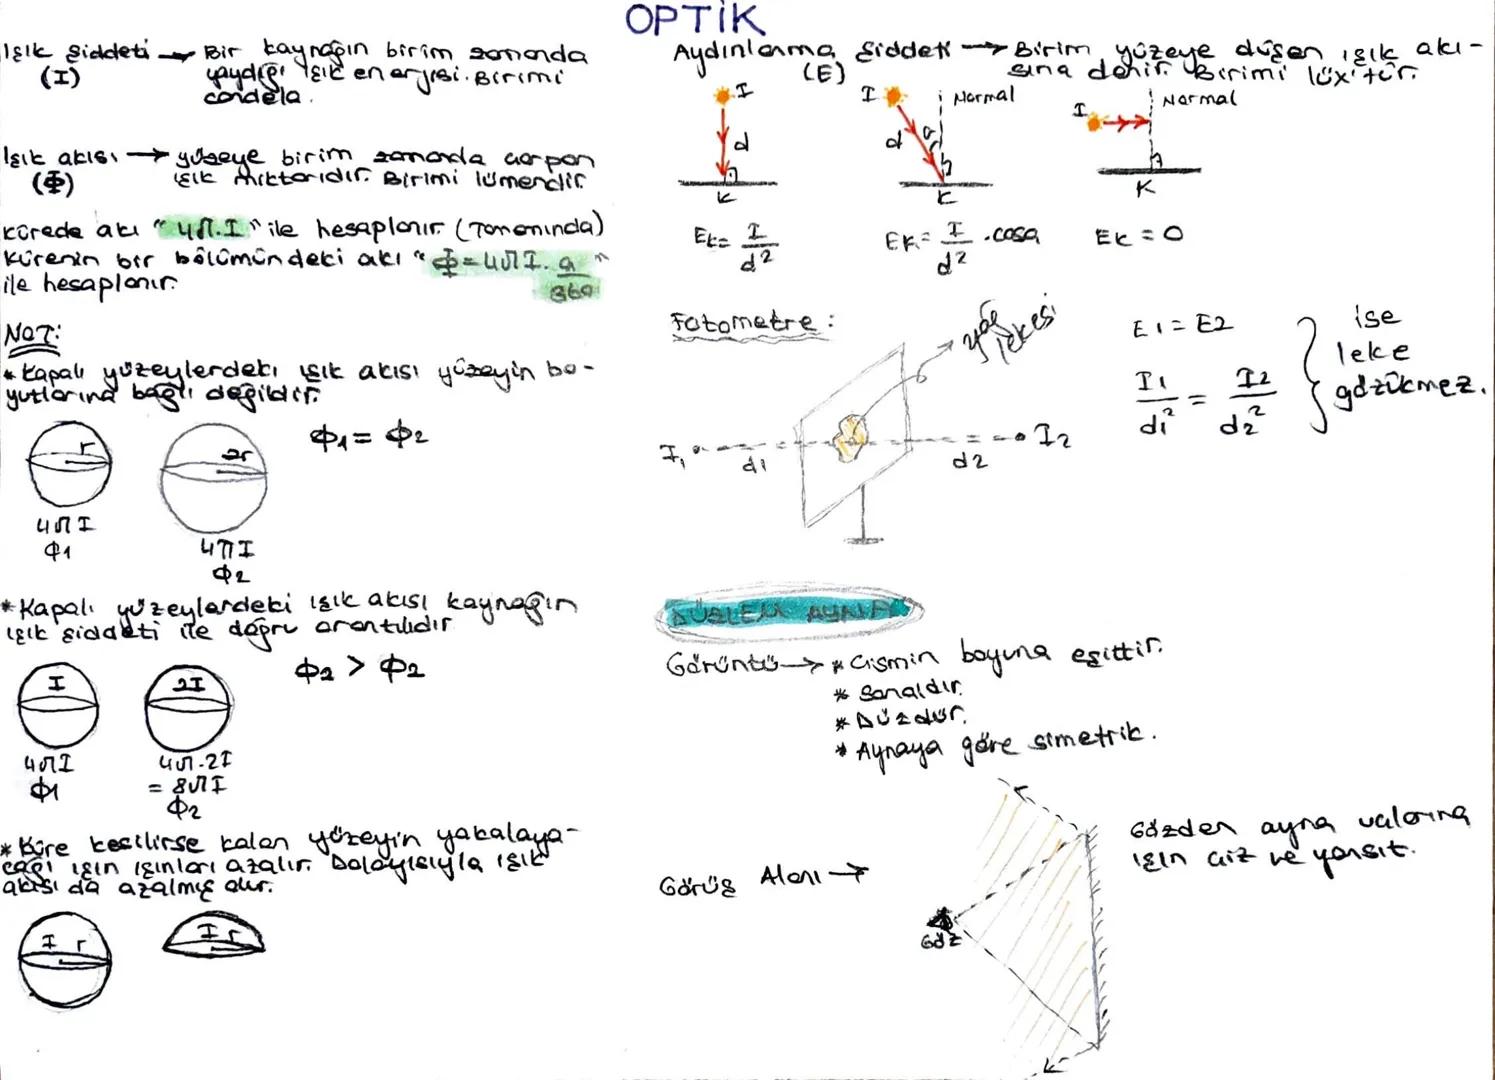 OPTİK
Işık şiddeti → Bir kaynağın birim zamanda
(I) yaydığı ışık enerjisi. Birimi
candela.
Işık akısı → yüzeye birim zamanda çarpan
(Φ) ışık miktarıdır. Birimi lümendir.
Kürede akı "4π.I" ile hesaplanır. (Tamamında)
Kürenin bir bölümündeki akı "Φ=4πI.a/360"
ile hesaplanır.
NOT:
* Kapalı yüzeylerdeki ışık akısı yüzeyin bo-
yutlarına bağlı değildir.
r 2r Φ1 = Φ2
4πI 4πI
Φ1 Φ2
* Kapalı yüzeylerdeki ışık akısı kaynağın
ışık şiddeti ile doğru orantılıdır
I 2I Φ2 > Φ2
4πI 4π.2I
Φ1 = 8πI
Φ2
* Küre kesilirse kalan yüzeyin yakalaya-
cağı ışın ışınları azalır. Dolayısıyla ışık
akısı da azalmış olur.
I r I r
Aydınlanma şiddeti → Birim yüzeye düşen ışık akı-
(E) sına denir. Birimi lüx'tür.
I I Normal I Normal
d d a
K K K
EK= I/d² EK= I/d² .cosa EK = 0
Fotometre: yağ lekesi
I1 d1 d2 I2
E1 = E2 ise
I1/d1² = I2/d2² leke
gözükmez.
DÜZLEM AYNA
Görüntü → * Cismin boyuna eşittir.
* Sanaldır.
* Düzdür.
* Aynaya göre simetrik.
Görüş Alanı →
Göz
Gözden ayna uçlarına
ışın çiz ve yansıt.